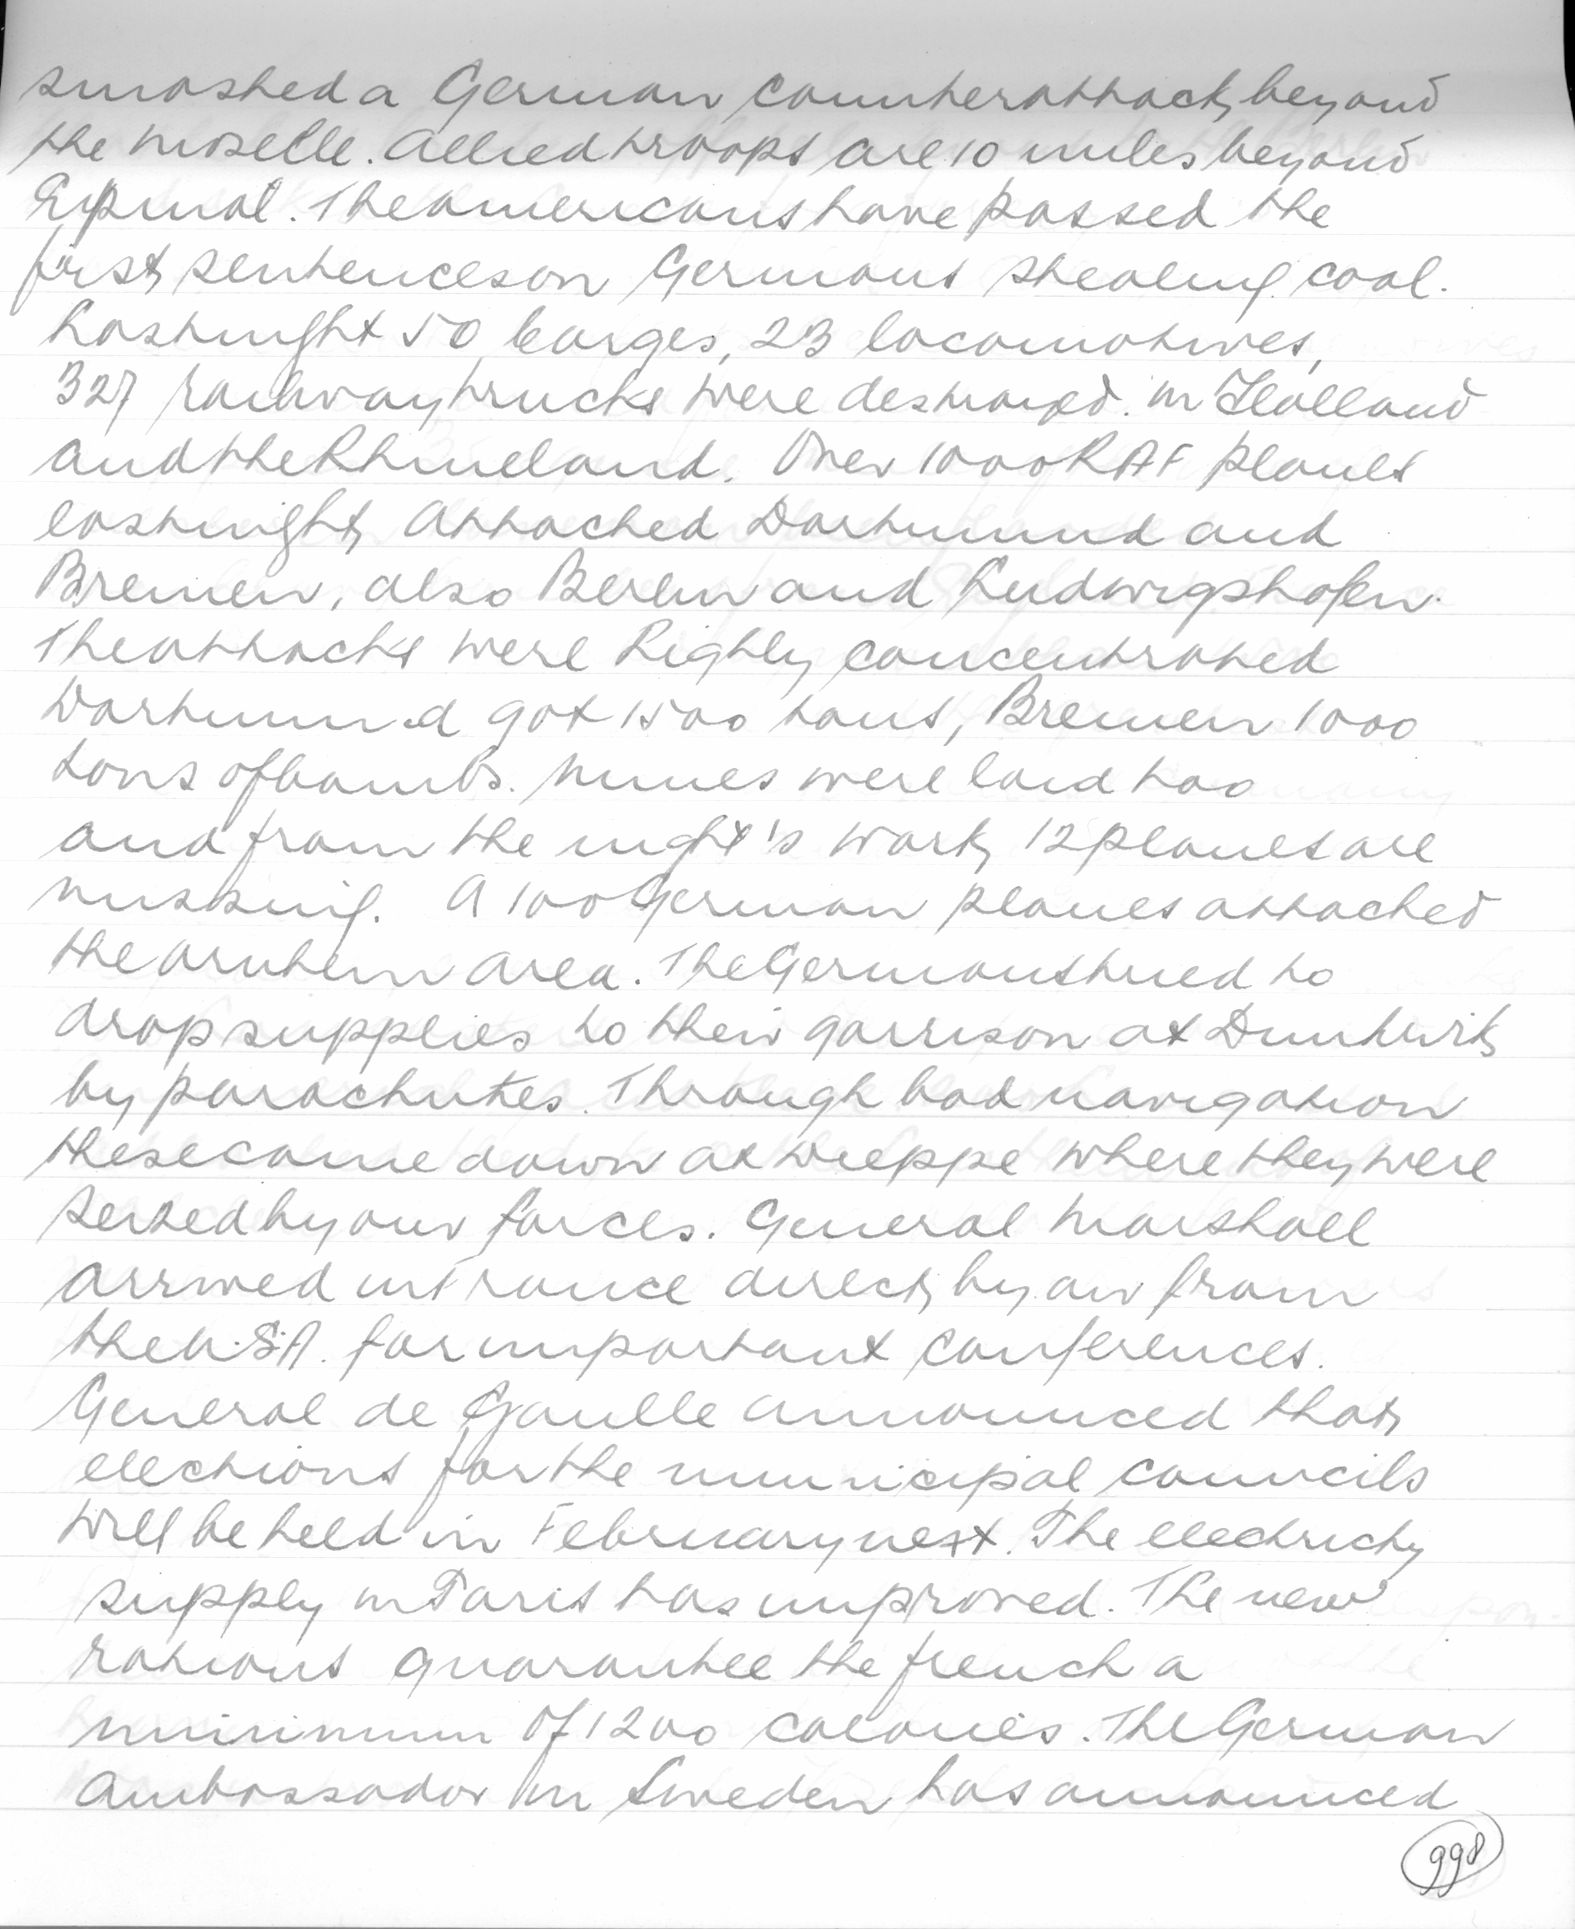 smashed a German counterattack beyond
the Moselle. Allied troops are 10 miles beyond
Epinal. The Americans have passed the
first sentences on Germans stealing coal.
Last night 50 barges, 23 locomotives,
327 railway trucks were destroyed. in Holland
and the Rhineland. Over 1000 RAF planes
last night attacked Dortmund and
Bremen, also Berlin and Ludwigshafen.
The attacks were highly concentrated
Dortmund got 1500 tons, Bremen 1000
tons of bombs. Mines were laid too
and from the night's work 12 planes are
missing. A 100 German planes attacked
the Arnhem area. The Germans tried to
drop supplies to their garrison at Dunkirk
by parachutes. Through bad navigation
these came down at Dieppe where they were
seized by our forces. General Marshall
arrived in France direct by air from
the U.S.A. for important conferences.
General de Gaulle announced that
elections for the municipal councils
will be held in February next. The electricity
supply in Paris has improved. The new
rations guarantee the french a
minimum of 1200 calories. The German
Ambassador in Sweden has announced
998